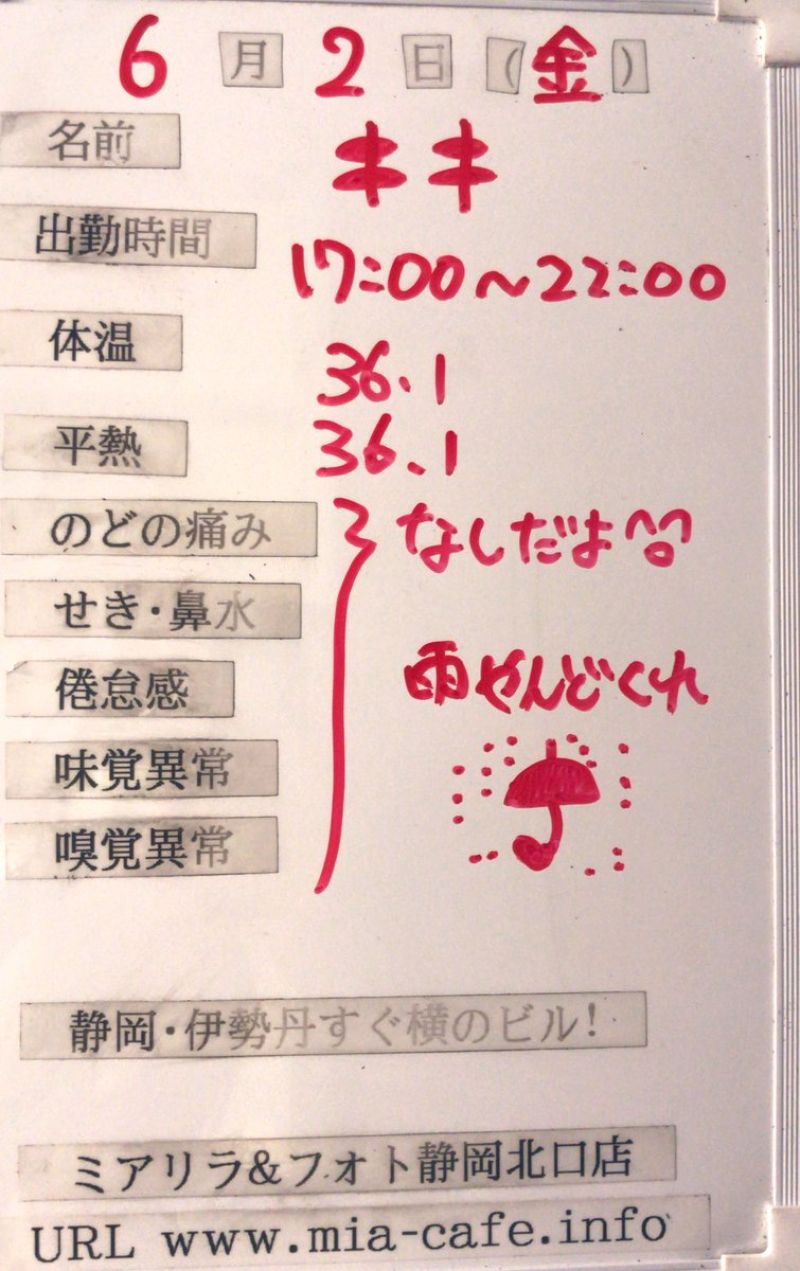 6月2日(金)
名前 キキ
出勤時間 17:00～22:00
体温 36.1
平熱 36.1
のどの痛み なしだよ^^
せき・鼻水
倦怠感 雨やんどくれ
味覚異常
嗅覚異常
静岡・伊勢丹すぐ横のビル!
ミアリラ&フォト静岡北口店
URL www.mia-cafe.info